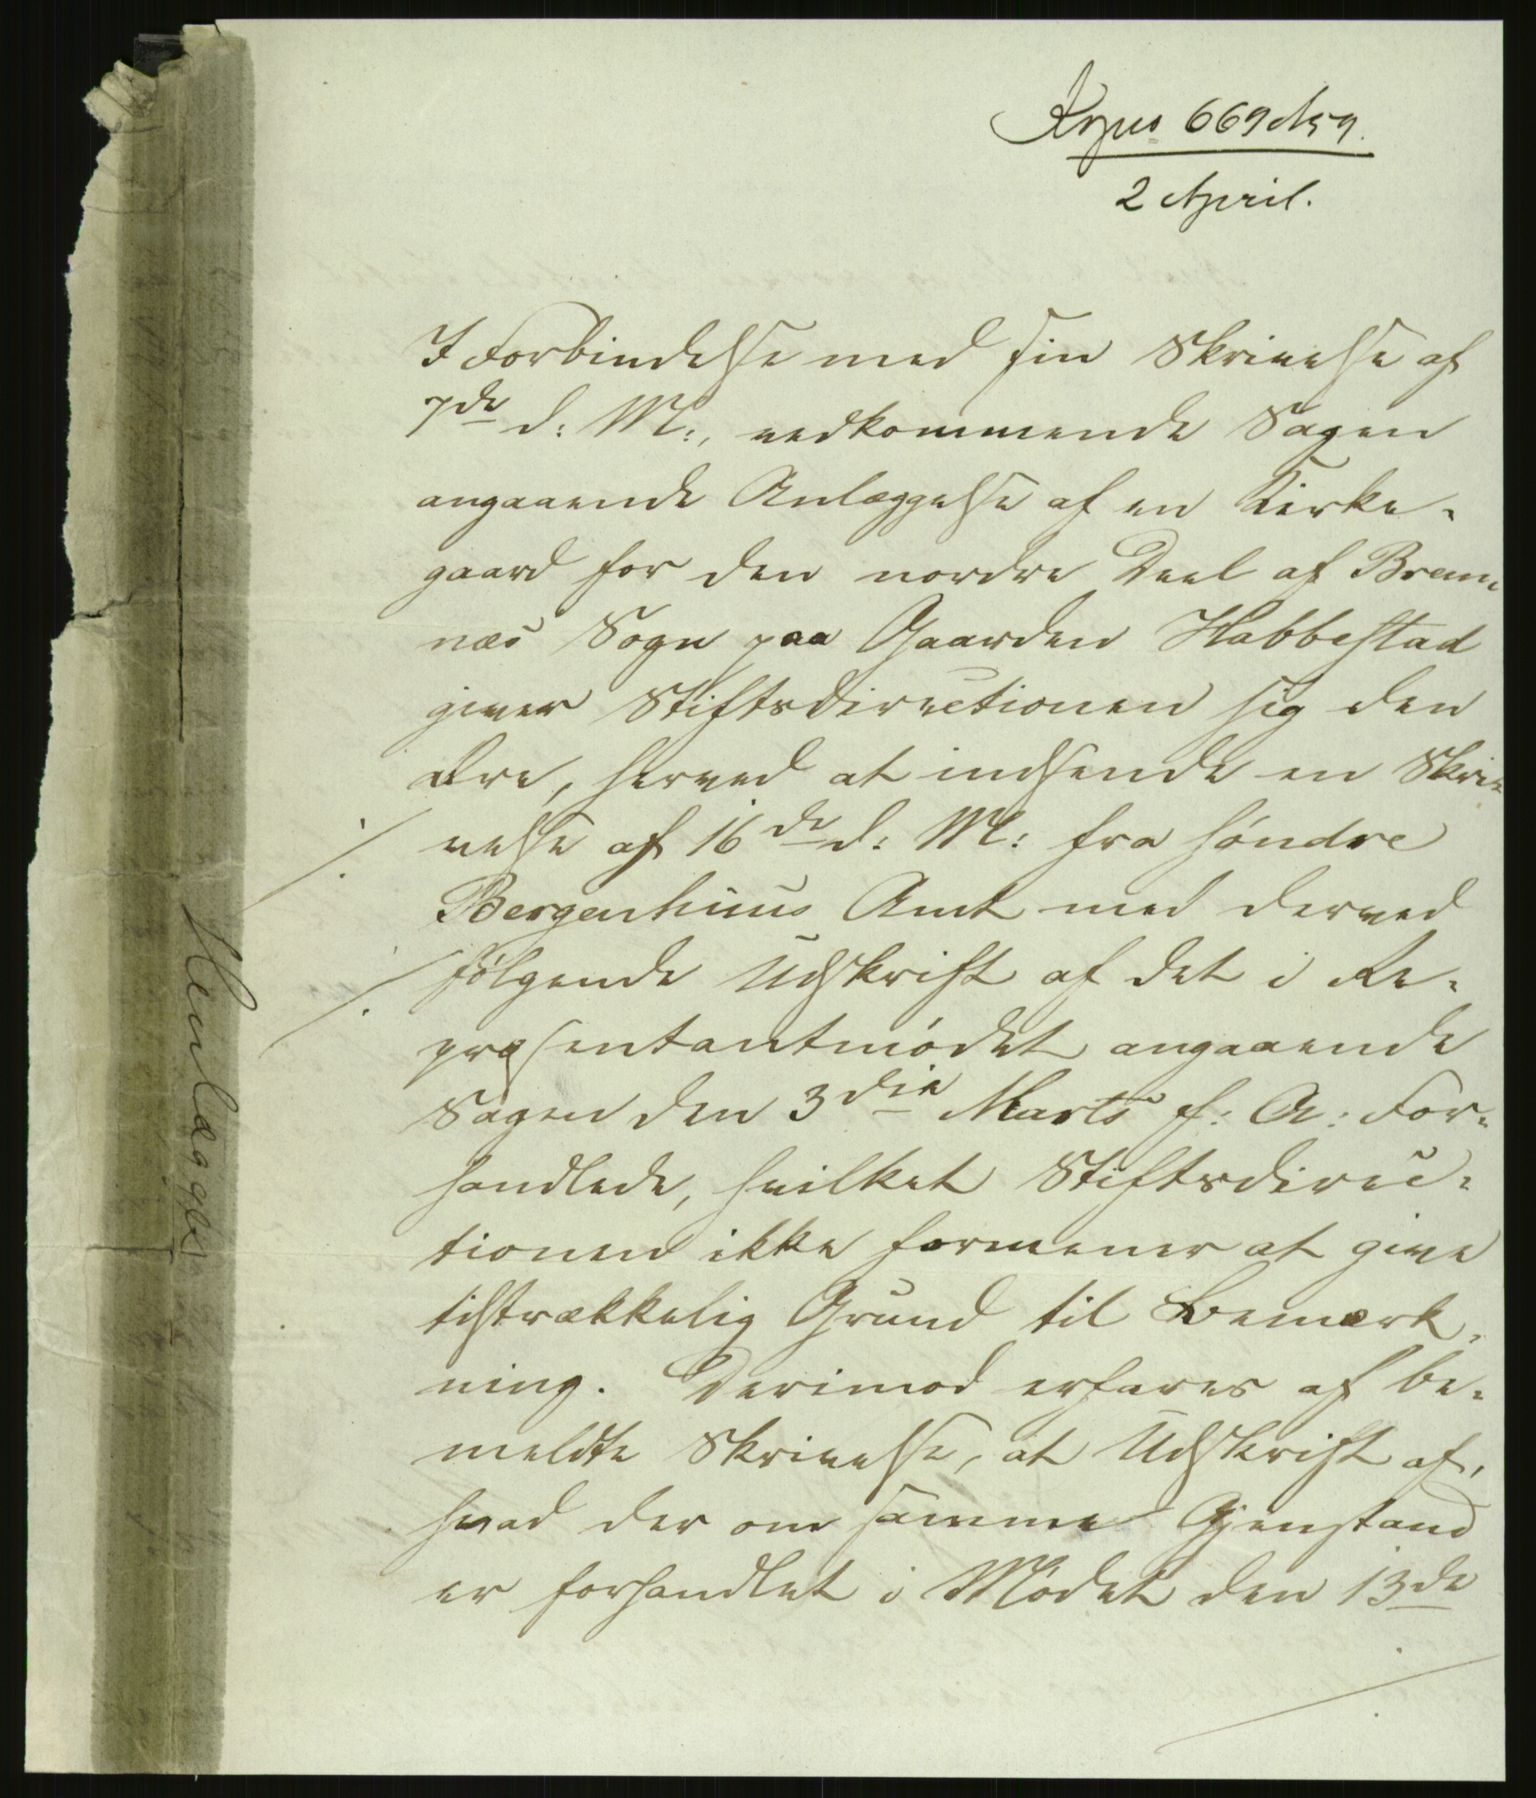 Krpus 669 A 59.
2 April.
I Forbindelse med sin Skrivelse af
7de d: M:, vedkommende Sagen
angaaende Anlæggelse af en Kirke-
gaard for den nordre Deel af Brem-
næs Sogn paa Gaarden Habbestad
giver Stiftsdirectionen sig den
Ære, herved at indsende en Skri-
velse af 16de d: M: fra søndre
Bergenhuus Amt med derved
følgende Udskrift af det i Re-
præsentantmødet angaaende
Sagen den 3die Marts f: A: For-
handlede, hvilket Stiftsdirec-
tionen ikke formener at give
tilstrækkelig Grund til Bemærk-
ning. Derimod erfares af be-
meldte Skrivelse, at Udskrift af,
hvad der om samme Gjenstand
er forhandlet i Mødet den 13de
Henlægges